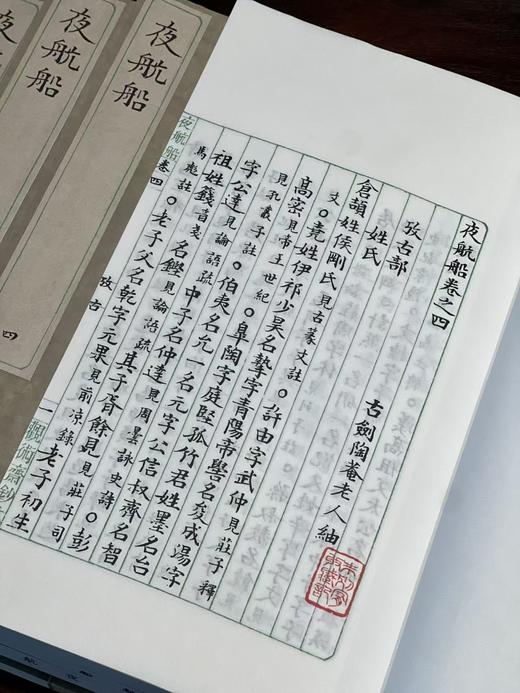 夜航船卷之四
攷古部 古劍陶菴老人紬
姓氏
倉頡姓侯剛氏見古篆文註。許由字武仲見莊子釋
文。堯姓伊祁少昊名摯字青陽帝嚳名夋成湯字
高密見帝王世紀。皋陶字庭堅孤竹君姓墨名台
見孔叢子註。伯夷名允一名元字公信叔齊名智
字公達見論語疏。中子名仲達見周曇詠史詩。彭
祖姓籛音戔名鏗見論語疏。其子胥餘見莊子司
馬彪註。老子父名乾字元果見前涼錄。老子初生
夜航船 卷四 攷古 一 觀術齋鈔
夜航船
夜航船
四